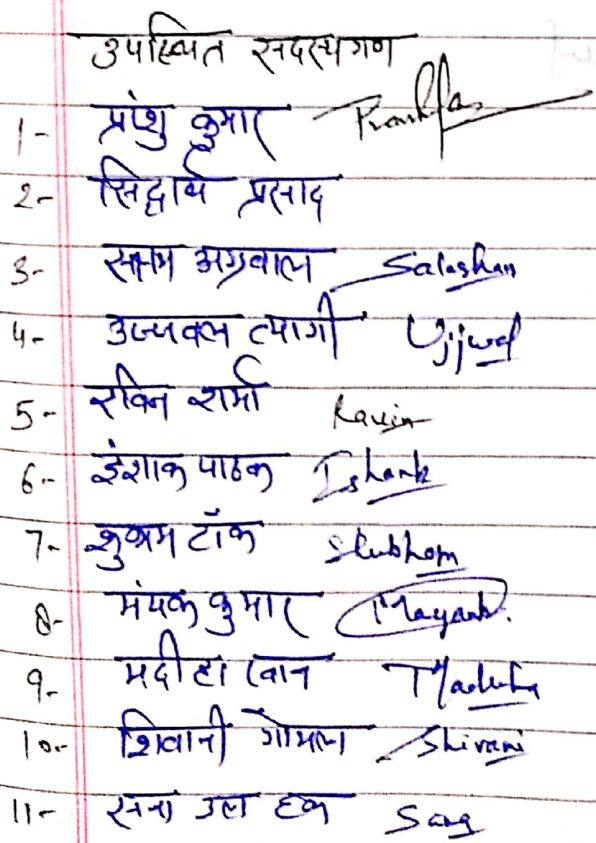 उपस्थित सदस्यगण
1- प्रांशु कुमार
2- सिद्धार्थ प्रसाद
3- सक्षम अग्रवाल
4- उज्जवल त्यागी Ujjwal
5- रविन शर्मा Ravin
6- इंशाक पाठक Ishank
7- शुभम टॉक Shubham
8- मंयक कुमार Mayank
9- मदीहा खान Madiha
10- शिवानी गोयल Shivani
11- सना उल हक Sana